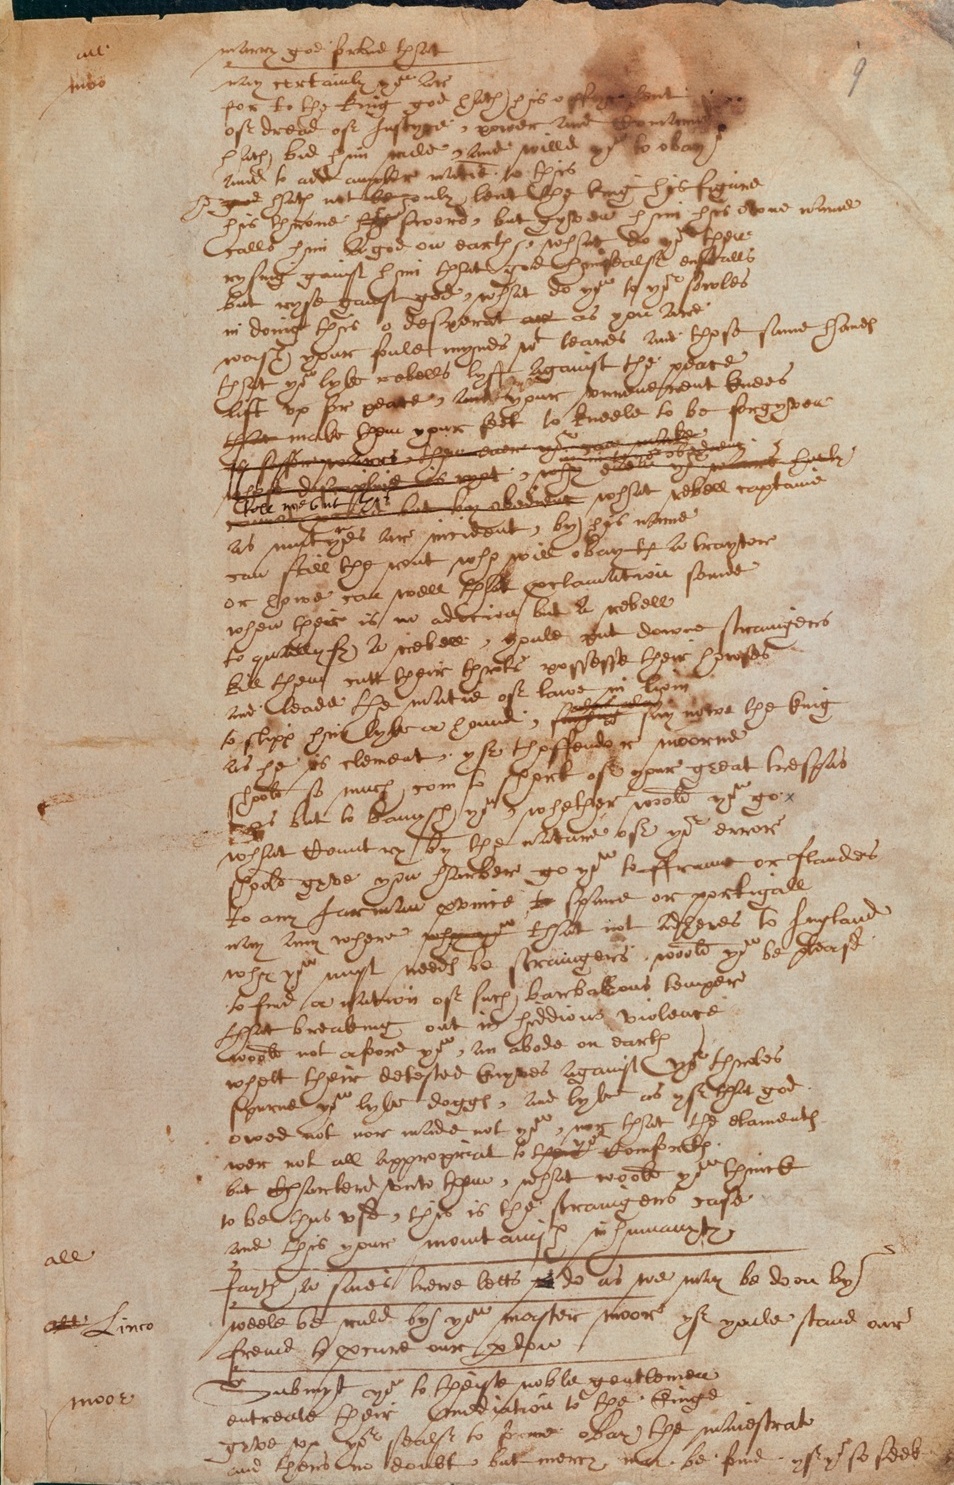 all marry god forbid that
moo nay certainly yo" ar
for to the king god hath his offyc lent
of dread of Justyce, power and Comaund
hath bid him rule, and willd yo" to obay
and to add ampler matie. to this
he god hath not le only lent the king his figure
his throne his sword, but gyven him his owne name
calls him a god on earth, what do yo" then
rysing gainst him that god himsealf enstalls
but ryse gainst god, what do yo" to yor sowles
in doing this o desperat ar as you are.
wash your foule mynds wt teares and those same hands
that yo" lyke rebells lyft against the peace
lift vp for peace, and your vnreuerent knees
that make them your feet to kneele to be forgyven
is safer warrs, then euer yo" can make
whose discipline is ryot, why euen yor warrs hurly
in in to yor obedienc
cannot proceed but by obedienc what rebell captaine
tell me but this
as mutyes ar incident, by his name
can still the rout who will obay th a traytor
or howe can well that proclamation sounde
when ther is no adicion but a rebell
to quallyfy a rebell, youle put downe straingers
kill them cutt their throts possesse their howses
and leade the matie of lawe in liom
to slipp him lyke a hound, say nowe the king
as he is clement, yf thoffendor moorne
shoold so much com to short of your great trespas
as but to banysh yo", whether woold yo" go.
what Country by the nature of yor error
shoold gyve you harber go yo" to ffraunc or flanders
to any Jarman province to spane or portigall
nay any where why yo" that not adheres to Ingland
why yo" must needs be straingers. woold yo" be pleasd
to find a nation of such barbarous temper
that breaking out in hiddious violence
woold not afoord yo", an abode on earth
whett their detested knyves against yor throtes
spurne yo" lyke doggs, and lyke as yf that god
owed not nor made not yo", nor that the elaments
wer not all appropriat to ther yor Comforts.
but Charterd vnto them, what woold yo" thinck
to be thus vsd, this is the straingers case
and this your momtanish inhumanyty
all fayth a saies trewe letts vs do as we may be doon by
all Linco weele be ruld by yo" master moor yf youle stand our
freind to procure our pardon
moor Submyt yo" to theise noble gentlemen
entreate their mediation to the kinge
gyve vp yor sealf to forme obay the maiestrate
and thers no doubt, but mercy may be found. yf yo" so seek
9